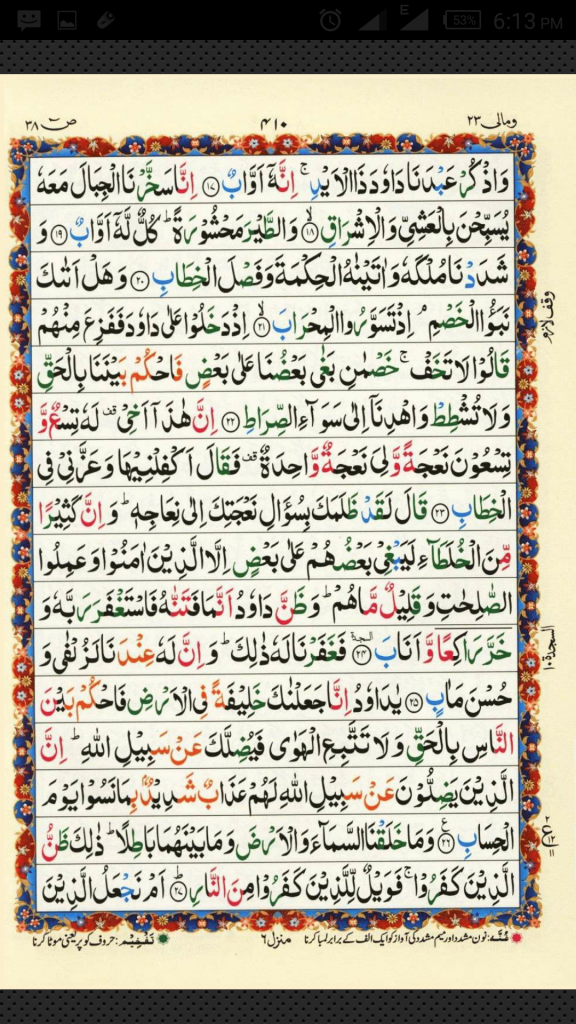 E 53% 6:13 PM
ومالی ۲۳ ۴۱۰ صٓ ۳۸
وَاذْكُرْ عَبْدَنَا دَاوٗدَ ذَا الْاَيْدِ ۚ اِنَّهٗۤ اَوَّابٌ ﴿۱۷﴾ اِنَّا سَخَّرْنَا الْجِبَالَ مَعَهٗ
يُسَبِّحْنَ بِالْعَشِيِّ وَالْاِشْرَاقِ ﴿۱۸﴾ۙ وَالطَّيْرَ مَحْشُوْرَةً ؕ كُلٌّ لَّهٗۤ اَوَّابٌ ﴿۱۹﴾ وَ
شَدَدْنَا مُلْكَهٗ وَاٰتَيْنٰهُ الْحِكْمَةَ وَفَصْلَ الْخِطَابِ ﴿۲۰﴾ وَهَلْ اَتٰىكَ
نَبَؤُا الْخَصْمِ ۘ اِذْ تَسَوَّرُوا الْمِحْرَابَ ﴿۲۱﴾ۙ اِذْ دَخَلُوْا عَلٰى دَاوٗدَ فَفَزِعَ مِنْهُمْ
وقف لازم
قَالُوْا لَا تَخَفْ ۚ خَصْمٰنِ بَغٰى بَعْضُنَا عَلٰى بَعْضٍ فَاحْكُمْ بَيْنَنَا بِالْحَقِّ
وَلَا تُشْطِطْ وَاهْدِنَاۤ اِلٰى سَوَآءِ الصِّرَاطِ ﴿۲۲﴾ اِنَّ هٰذَاۤ اَخِيْ ۟ قف لَهٗ تِسْعٌ وَّ
تِسْعُوْنَ نَعْجَةً وَّلِيَ نَعْجَةٌ وَّاحِدَةٌ ۟ قف فَقَالَ اَكْفِلْنِيْهَا وَعَزَّنِيْ فِي
الْخِطَابِ ﴿۲۳﴾ قَالَ لَقَدْ ظَلَمَكَ بِسُؤَالِ نَعْجَتِكَ اِلٰى نِعَاجِهٖ ؕ وَاِنَّ كَثِيْرًا
مِّنَ الْخُلَطَآءِ لَيَبْغِيْ بَعْضُهُمْ عَلٰى بَعْضٍ اِلَّا الَّذِيْنَ اٰمَنُوْا وَعَمِلُوا
الصّٰلِحٰتِ وَقَلِيْلٌ مَّا هُمْ ؕ وَظَنَّ دَاوٗدُ اَنَّمَا فَتَنّٰهُ فَاسْتَغْفَرَ رَبَّهٗ وَ
خَرَّ رَاكِعًا وَّاَنَابَ ﴿۲۴﴾ السجدة فَغَفَرْنَا لَهٗ ذٰلِكَ ؕ وَاِنَّ لَهٗ عِنْدَنَا لَزُلْفٰى وَ
السجدة ۱۰
حُسْنَ مَاٰبٍ ﴿۲۵﴾ يٰدَاوٗدُ اِنَّا جَعَلْنٰكَ خَلِيْفَةً فِي الْاَرْضِ فَاحْكُمْ بَيْنَ
النَّاسِ بِالْحَقِّ وَلَا تَتَّبِعِ الْهَوٰى فَيُضِلَّكَ عَنْ سَبِيْلِ اللّٰهِ ؕ اِنَّ
الَّذِيْنَ يَضِلُّوْنَ عَنْ سَبِيْلِ اللّٰهِ لَهُمْ عَذَابٌ شَدِيْدٌۢ بِمَا نَسُوْا يَوْمَ
الْحِسَابِ ﴿۲۶﴾ ع وَمَا خَلَقْنَا السَّمَآءَ وَالْاَرْضَ وَمَا بَيْنَهُمَا بَاطِلًا ؕ ذٰلِكَ ظَنُّ
ع ۲ ۱۲ ۱۱
الَّذِيْنَ كَفَرُوْا ۚ فَوَيْلٌ لِّلَّذِيْنَ كَفَرُوْا مِنَ النَّارِ ﴿۲۷﴾ؕ اَمْ نَجْعَلُ الَّذِيْنَ
غُنَّه: نون مشدد اور میم مشدد کی آواز کو ایک الف کے برابر لمبا کرنا منزل ۶ تَفْخِيْم: حروف کو پُر یعنی موٹا کرنا